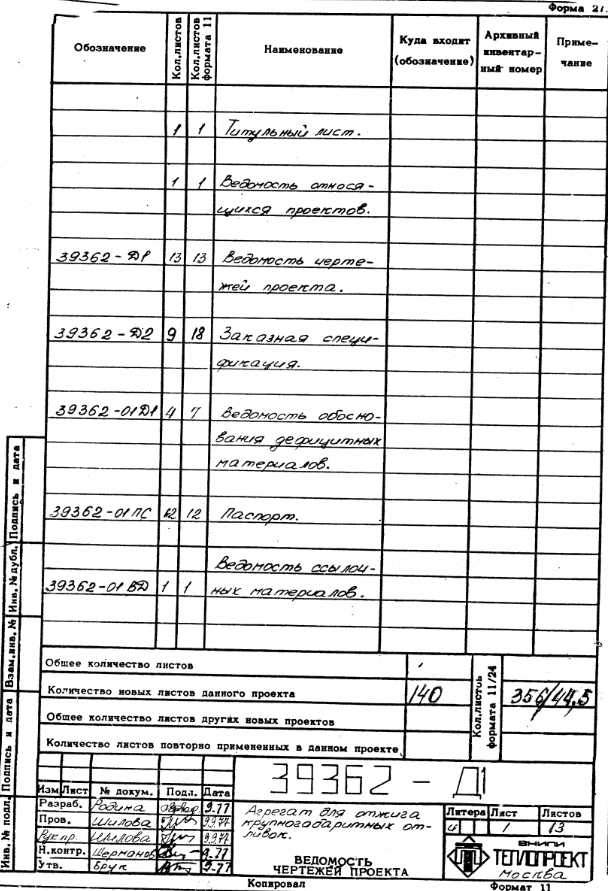 Форма 27.
Обозначение
Кол.листов
Кол.листов формата 11
Наименование
Куда входит (обозначение)
Архивный инвентар-ный номер
Приме-чание
1 1 Титульный лист.
1 1 Ведомость относя-
щихся проектов.
39362-Д1 13 13 Ведомость черте-
жей проекта.
39362-Д2 9 18 Заказная специ-
фикация.
39362-01Д1 4 7 Ведомость обосно-
вания дефицитных
материалов.
39362-01ПС 12 12 Паспорт.
Ведомость ссылоч-
39362-01 ВД 1 1 ных материалов.
Общее количество листов
Количество новых листов данного проекта 140
Кол.листов формата 11/24 356/44,5
Общее количество листов других новых проектов
Количество листов повторно примененных в данном проекте
39362-Д1
Изм Лист № докум. Подп. Дата
Разраб. Родина 9.77
Пров. Шилова 9.77
Рук.пр. Шилова 9.77
Н.контр. Шерманов 9.77
Утв. Брук 9.77
Агрегат для отжига
крупногабаритных от-
ливок.
ВЕДОМОСТЬ
ЧЕРТЕЖЕЙ ПРОЕКТА
Литера Лист Листов
и 1 13
ВНИПИ
ТЕПЛОПРОЕКТ
Москва
Копировал
Формат 11
Инв. № подл. Подпись и дата Взам.инв. № Инв. № дубл. Подпись и дата